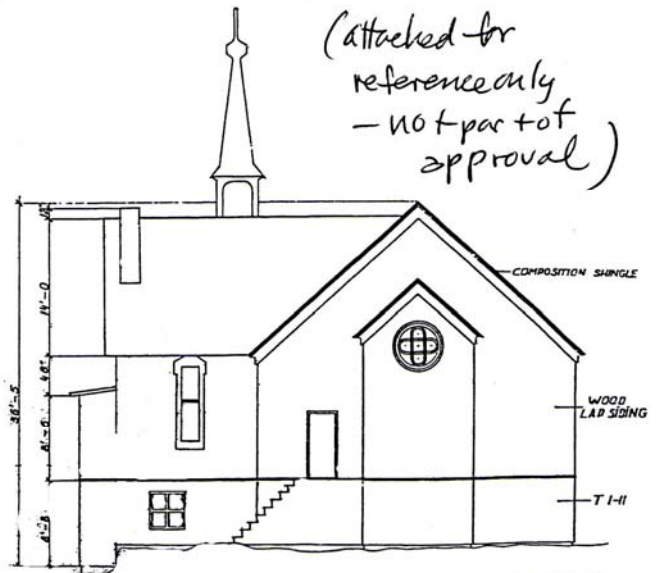 (attached for
reference only
— not part of
approval)
COMPOSITION SHINGLE
14'-0
WOOD
LAP SIDING
T 1-11